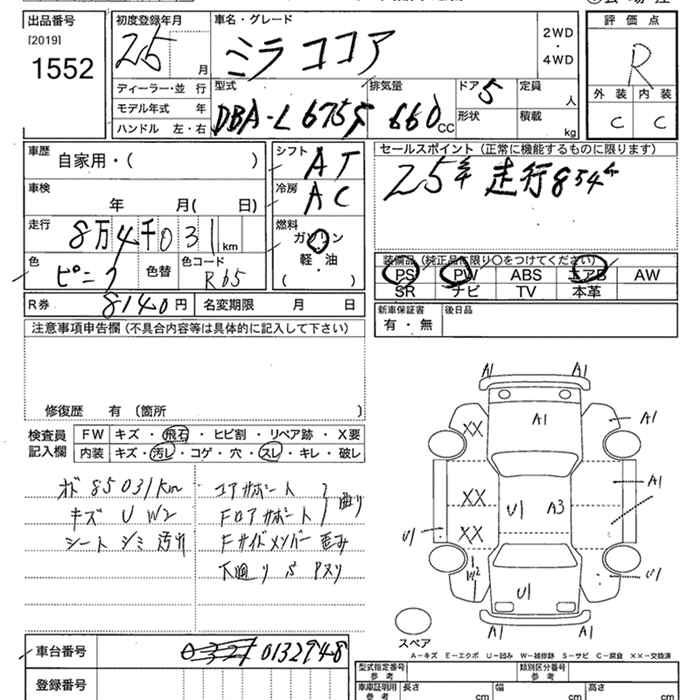 出品番号
[2019]
1552
初度登録年月
25 月
車名・グレード
ミラココア
2WD
・
4WD
評価点
R
外装 内装
C C
ディーラー・並行
モデル年式 年
ハンドル 左・右
型式
DBA-L675S
排気量
660 CC
ドア
5
形状
定員
人
積載
kg
車歴
自家用・( )
車検
年 月( 日)
走行
8万4千031km
色
ピンク
色替
色コード
R65
シフト
AT
冷房
AC
燃料
ガソリン
軽・油
( )
セールスポイント(正常に機能するものに限ります)
25年 走行854
装備品(純正品に限り○をつけてください)
PS PW ABS エアB AW
SR ナビ TV 本革
R券 8140円 名変期限 月 日
新車保証書
有・無
後日品
注意事項申告欄(不具合内容等は具体的に記入して下さい)
修復歴 有(箇所 )
検査員
記入欄
FW キズ・飛石・ヒビ割・リペア跡・X要
内装 キズ・汚レ・コゲ・穴・スレ・キレ・破レ
オド 85031km
キズ U W2
シート シミ 汚れ
コアサポート
Fロアサポート
曲り
Fサイドメンバー 歪み
下廻り S アスリ
A1 A1
A1 A1
XX
XX U1 A3 A1
U1 XX
W2 U1 U1
A1 A1
スペア
A－キズ E－エクボ U－凹み W－補修跡 S－サビ C－腐食 XX－交換済
車台番号 0132948
登録番号
型式指定番号
参考
類別区分番号
参考
車庫証明用
参考
長さ cm
幅 cm
高さ cm